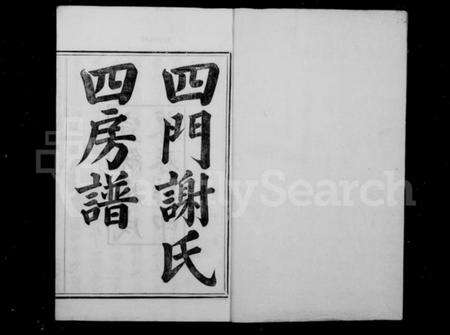 四門謝氏
四房譜
FamilySearch